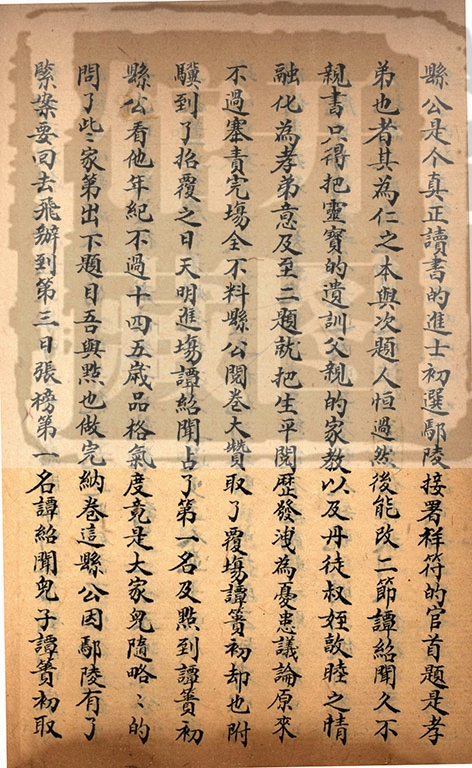 縣公是个真正讀書的進士初選鄢陵接署祥符的官首題是孝
弟也者其為仁之本與次題人恒過然後能改二節譚紹聞久不
親書只得把靈寶的遺訓父親的家教以及丹徒叔姪敦睦之情
融化為孝弟意及至二題就把生平閱歷發洩為憂患議論原來
不過塞責完場全不料縣公閱卷大贊取了覆場譚簣初却也附
驥到了招覆之日天明進場譚紹聞占了第一名及點到譚簣初
縣公看他年紀不過十四五歲品格氣度竟是大家兒隨略〻的
問了些〻家第出下題目吾與點也做完納卷這縣公因鄢陵有了
緊案要回去飛辦到第三日張榜第一名譚紹聞兒子譚簣初取